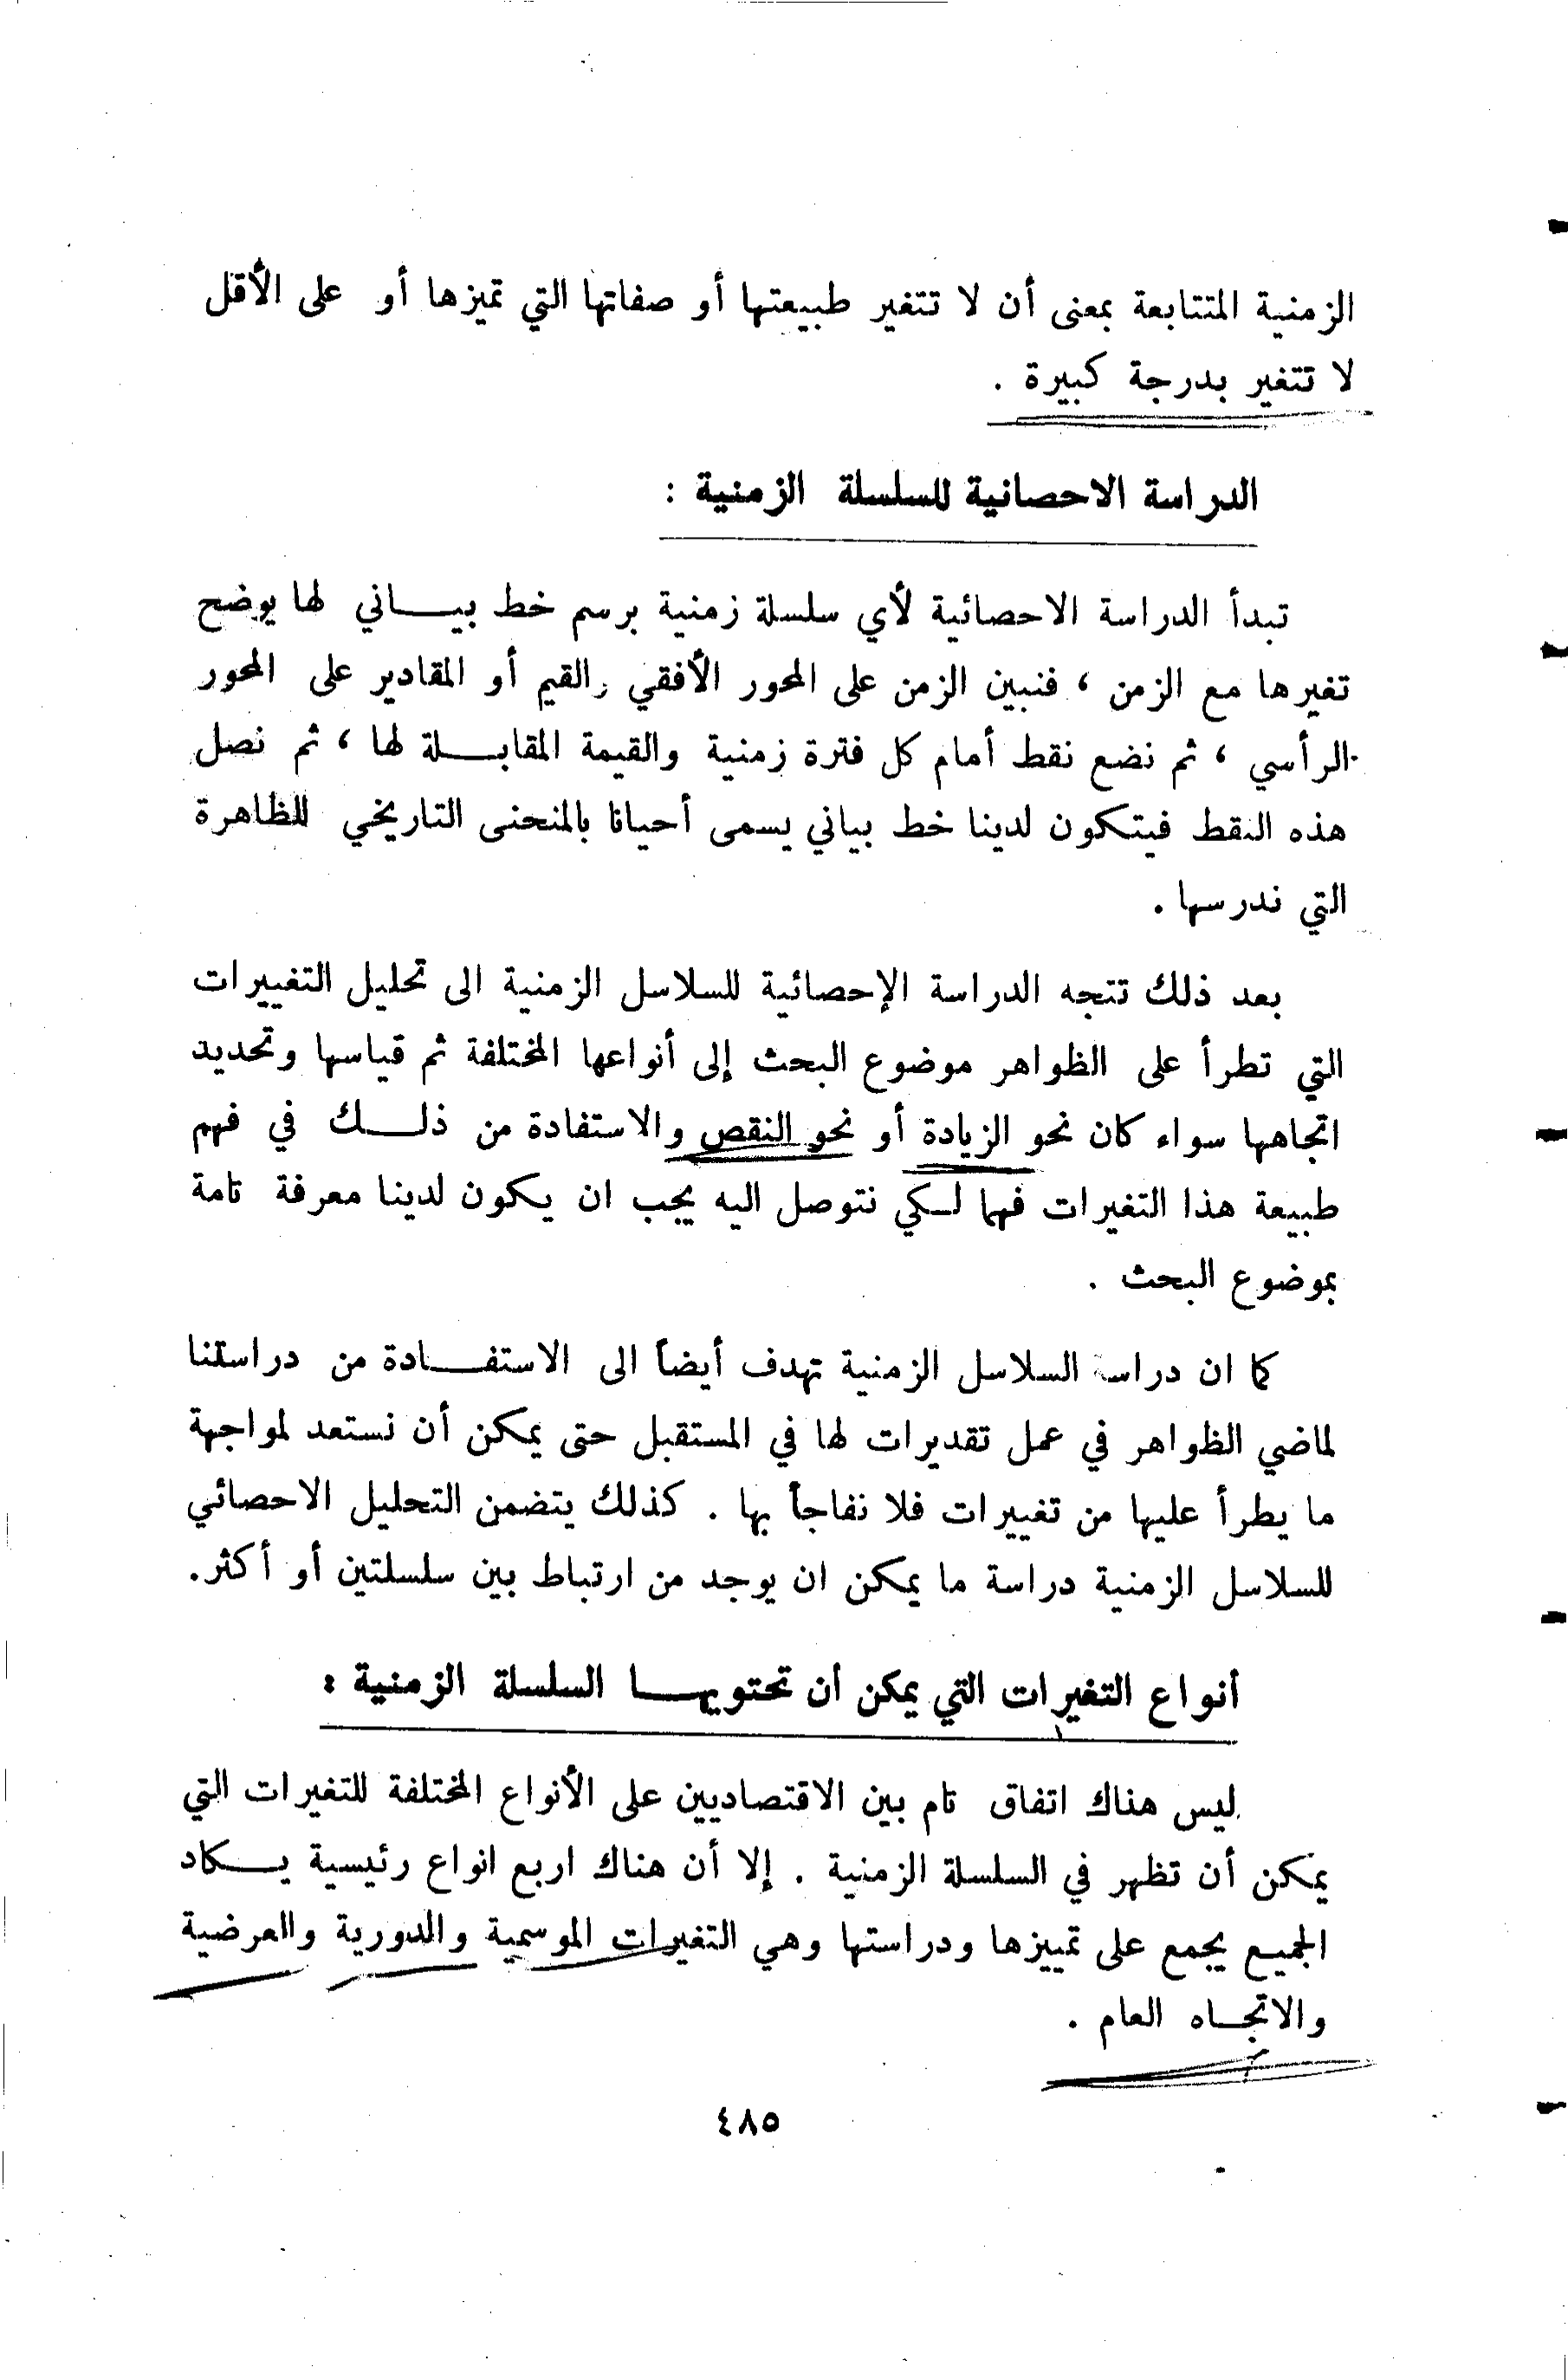 الزمنية المتتابعة بمعنى أن لا تتغير طبيعتها أو صفاتها التي تميزها أو على الأقل
لا تتغير بدرجة كبيرة .
الدراسة الاحصائية للسلسلة الزمنية :
تبدأ الدراسة الاحصائية لأي سلسلة زمنية برسم خط بيـــاني لها يوضح
تغيرها مع الزمن ، فنبين الزمن على المحور الأفقي والقيم أو المقادير على المحور
الرأسي ، ثم نضع نقط أمام كل فترة زمنية والقيمة المقابـــلة لها ، ثم نصل
هذه النقط فيتكون لدينا خط بياني يسمى أحيانا بالمنحنى التاريخي للظاهرة
التي ندرسها .
بعد ذلك تتجه الدراسة الإحصائية للسلاسل الزمنية الى تحليل التغييرات
التي تطرأ على الظواهر موضوع البحث إلى أنواعها المختلفة ثم قياسها وتحديد
اتجاهها سواء كان نحو الزيادة أو نحو النقص والاستفادة من ذلـــك في فهم
طبيعة هذا التغيرات فهما لـكي نتوصل اليه يجب ان يكون لدينا معرفة تامة
بموضوع البحث .
كما ان دراسة السلاسل الزمنية تهدف أيضاً الى الاستفـــادة من دراستنا
لماضي الظواهر في عمل تقديرات لها في المستقبل حتى يمكن أن نستعد لمواجهة
ما يطرأ عليها من تغييرات فلا نفاجأ بها . كذلك يتضمن التحليل الاحصائي
للسلاسل الزمنية دراسة ما يمكن ان يوجد من ارتباط بين سلسلتين أو أكثر.
أنواع التغيرات التي يمكن أن تحتويهـــا السلسلة الزمنية :
ليس هناك اتفاق تام بين الاقتصاديين على الأنواع المختلفة للتغيرات التي
يمكن أن تظهر في السلسلة الزمنية . إلا أن هناك اربع انواع رئيسية يـــكاد
الجميع يجمع على تمييزها ودراستها وهي التغيرات الموسمية والدورية والعرضية
والاتجـــاه العام .
٤٨٥